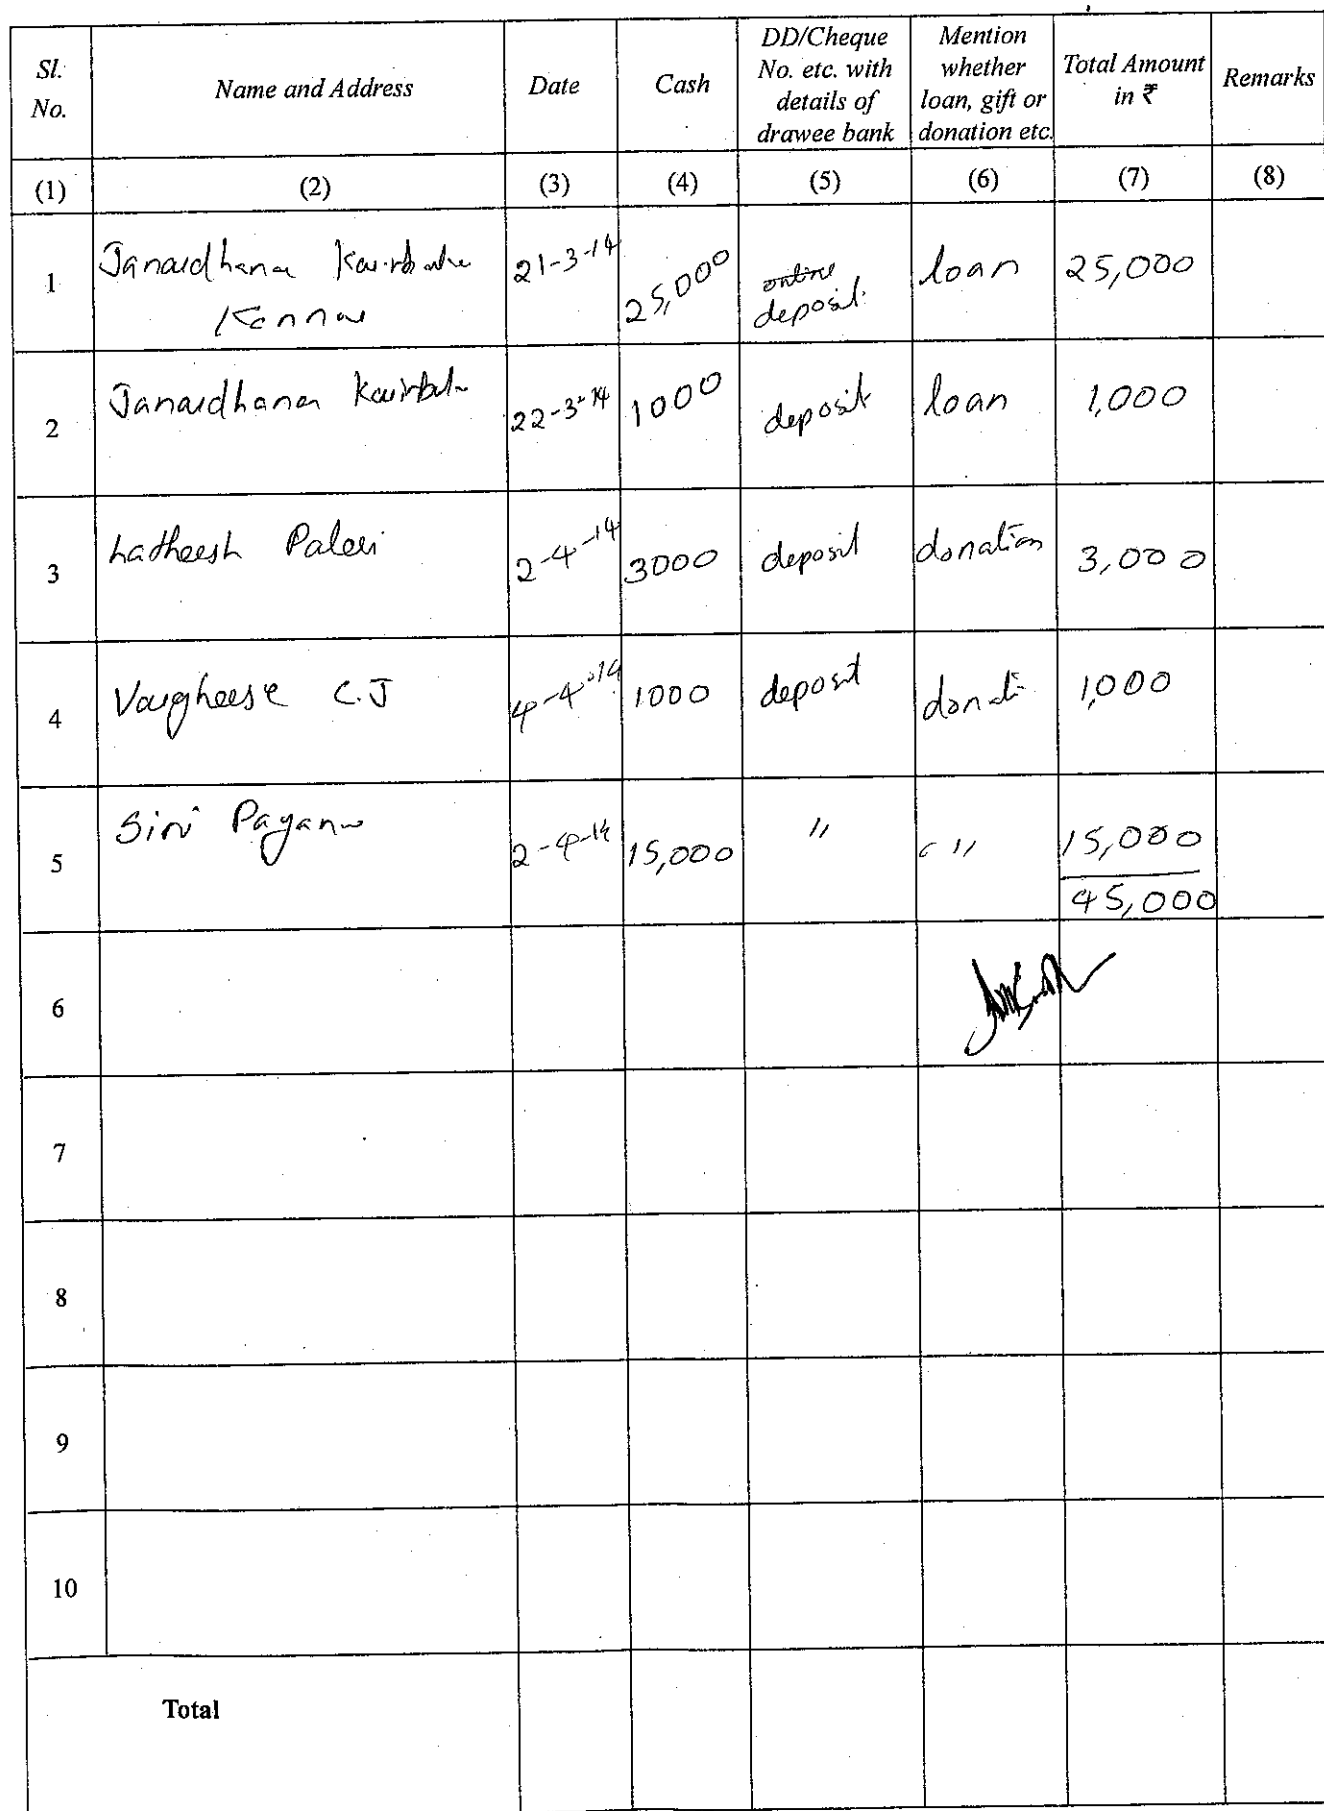 Sl. No.
Name and Address
Date
Cash
DD/Cheque No. etc. with details of drawee bank
Mention whether loan, gift or donation etc.
Total Amount in ₹
Remarks
(1) (2) (3) (4) (5) (6) (7) (8)
1 Janardhanan 21-3-14 25,000 deposit loan 25,000
2 Janardhanan 22-3-14 1000 deposit loan 1,000
3 Latheesh Paleri 2-4-14 3000 deposit donation 3,000
4 Vargheese C.J 4-4-14 1000 deposit 1,000
5 2-4-14 15,000 " " 15,000
45,000
6
7
8
9
10
Total